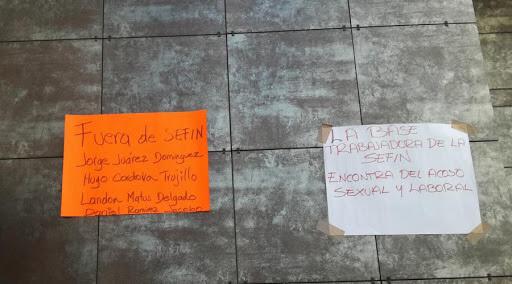 Fuera de SEFIN
Jorge Juárez Dominguez
Hugo Cordova Trujillo
Landon Matus Delgado
Daniel Ramirez
LA BASE
TRABAJADORA DE LA
SEFIN
ENCONTRA DEL ACOSO
SEXUAL Y LABORAL